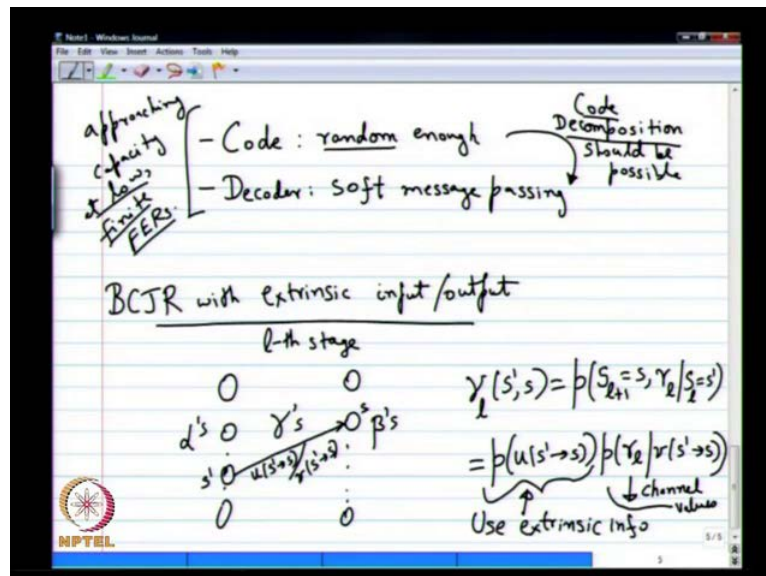 Note1 - Windows Journal
File Edit View Insert Actions Tools Help
approaching
capacity
at low,
finite
FERs.
- Code : random enough
- Decoder : soft message passing
Code
Decomposition
should be
possible
BCJR with extrinsic input/output
l-th stage
α's γ's s β's
s' u(s'→s)/v(s'→s)
γ_l(s',s) = p(S_{l+1}=s, r_l | S_l=s')
= p(u(s'→s)) p(r_l | v(s'→s))
↓ channel
values
Use extrinsic info
NPTEL
5/5
5